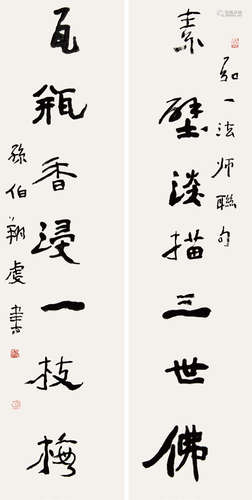 素壁淡描三世佛
弘一法师联句
瓦瓶香浸一枝梅
孙伯翔虔书